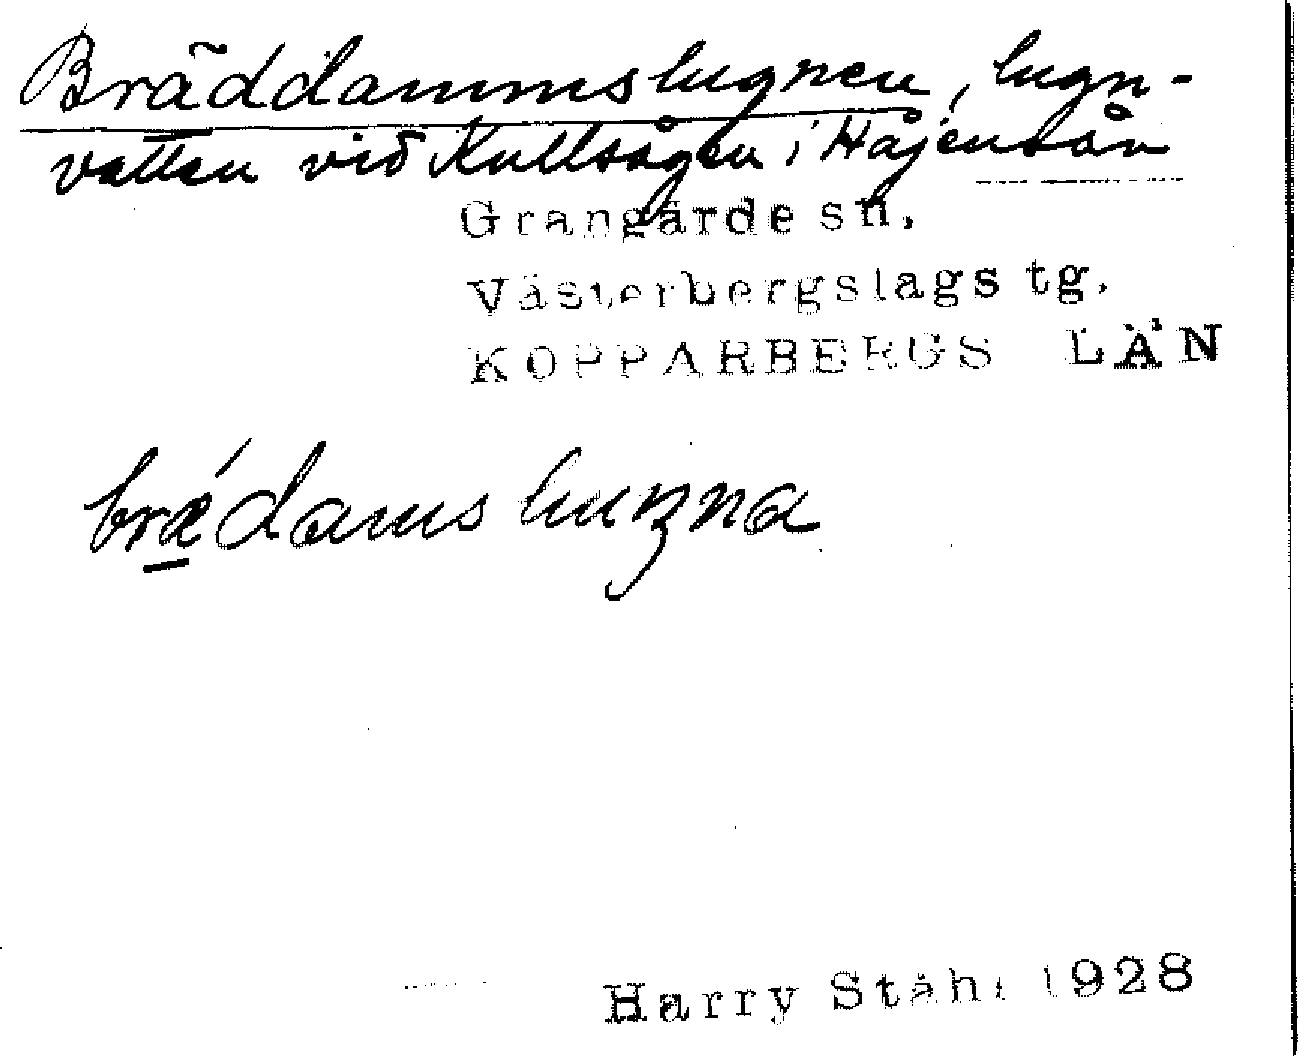 Bräddammslugnen, lugn-
vatten vid Kullsågen i Håjensån
Grangärde sn.
Västerbergslags tg.
KOPPARBERGS LÄN
brǽdams luŋna
Harry Ståhl 1928